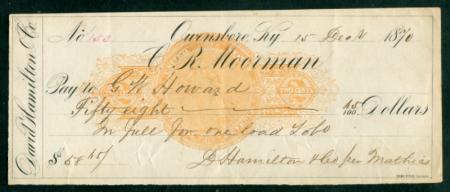 David Hamilton & Co.
No 153 Owensboro, Ky 15 Dec 1870
C. R. Moorman
Pay to G. W. Howard
Fifty eight 45/100 Dollars
In full for one load Tobo
$ 58 45/ D Hamilton & Co per Mathias